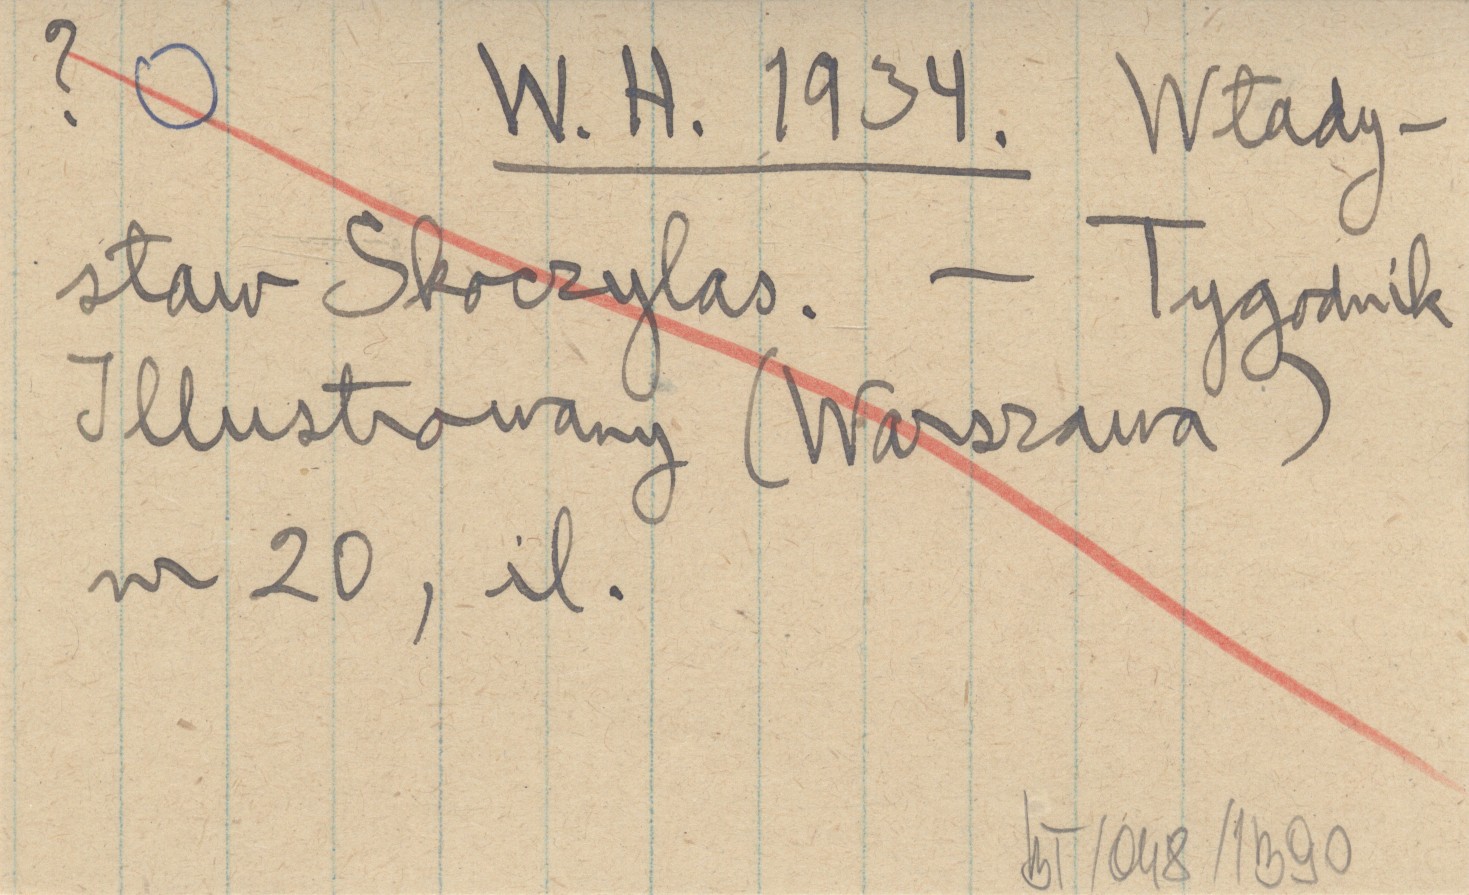 ?
W. H. 1934. Włady-
sław Skoczylas. — Tygodnik
Illustrowany (Warszawa)
nr 20, il.
BT/048/1390